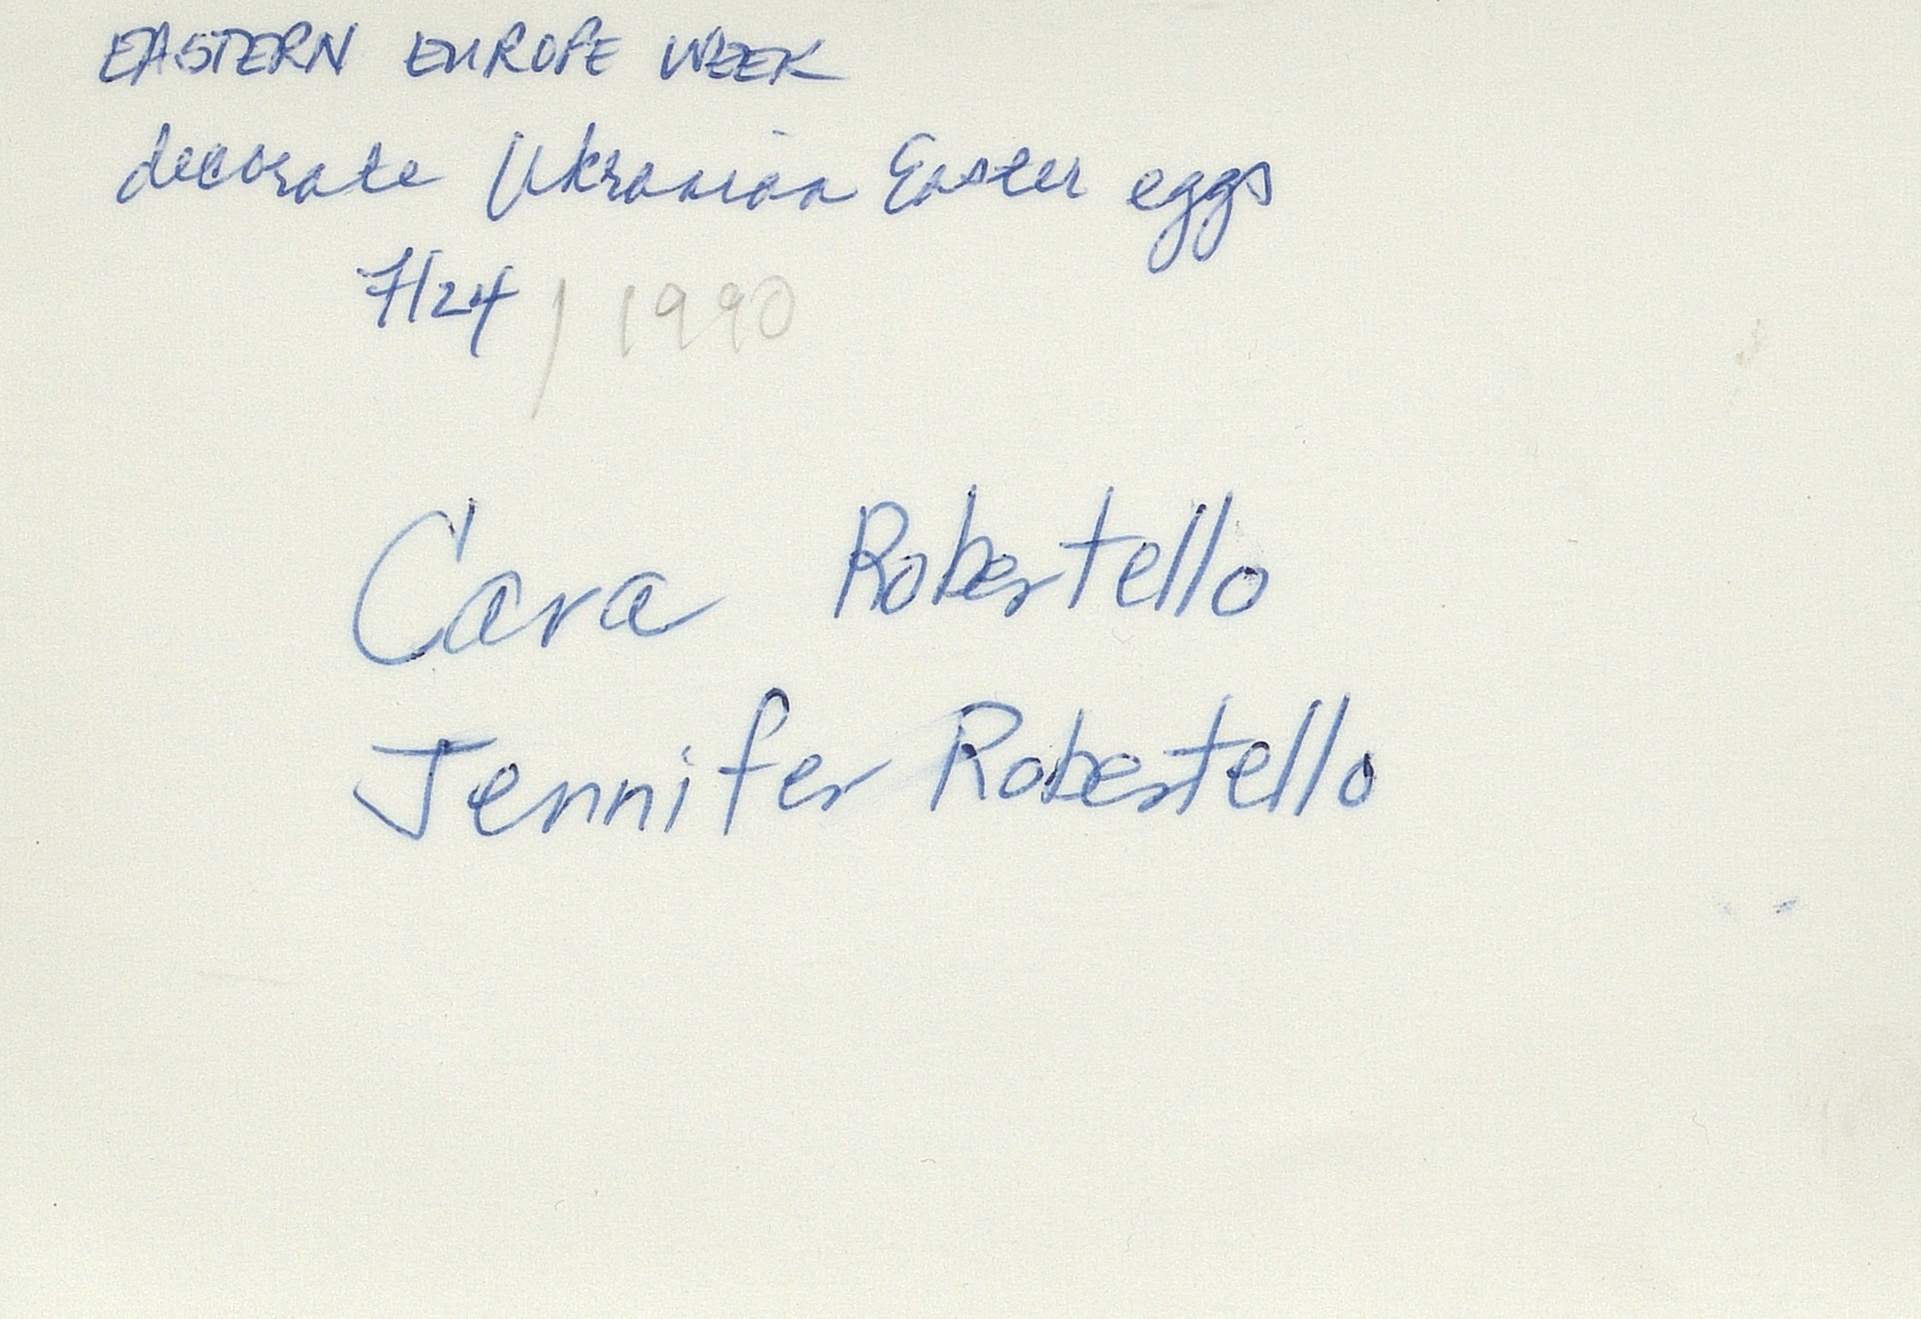 EASTERN EUROPE WEEK
decorate Ukranian Easter eggs
7/24/1990
Cara Robertello
Jennifer Robertello